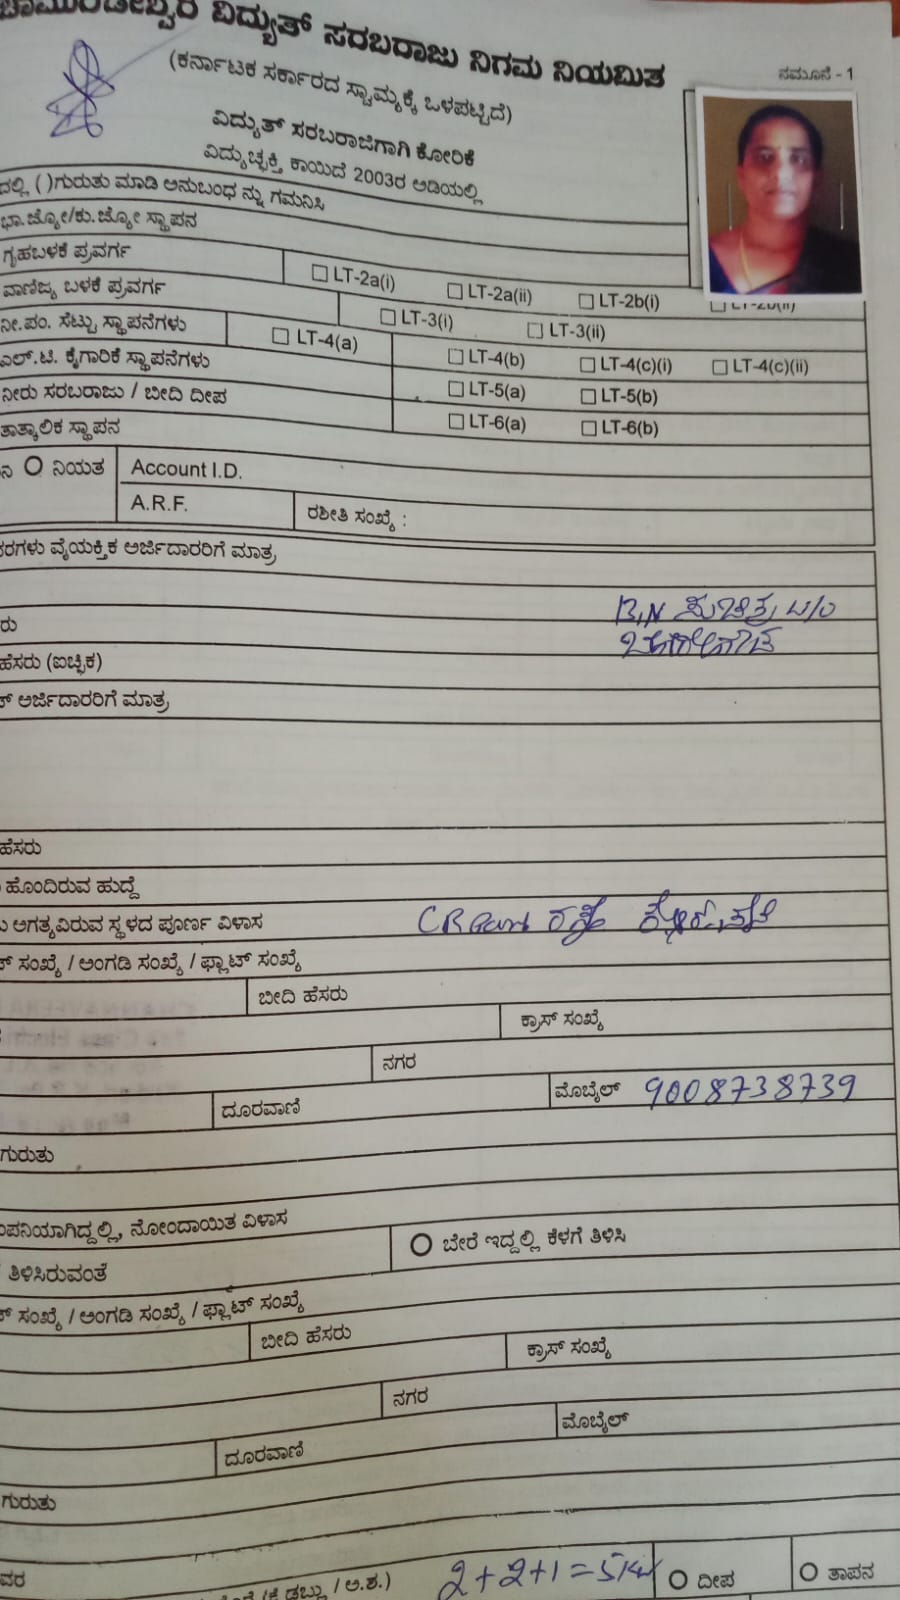 ಚಾಮುಂಡೇಶ್ವರಿ ವಿದ್ಯುತ್ ಸರಬರಾಜು ನಿಗಮ ನಿಯಮಿತ
ನಮೂನೆ - 1
(ಕರ್ನಾಟಕ ಸರ್ಕಾರದ ಸ್ವಾಮ್ಯಕ್ಕೆ ಒಳಪಟ್ಟಿದೆ)
ವಿದ್ಯುತ್ ಸರಬರಾಜಿಗಾಗಿ ಕೋರಿಕೆ
ವಿದ್ಯುಚ್ಛಕ್ತಿ ಕಾಯಿದೆ 2003ರ ಅಡಿಯಲ್ಲಿ
ದಲ್ಲಿ ( )ಗುರುತು ಮಾಡಿ ಅನುಬಂಧ ನ್ನು ಗಮನಿಸಿ
ಭಾ.ಜ್ಯೋ/ಕು.ಜ್ಯೋ ಸ್ಥಾಪನ
ಗೃಹಬಳಕೆ ಪ್ರವರ್ಗ LT-2a(i) LT-2a(ii) LT-2b(i) LT-2b(ii)
ವಾಣಿಜ್ಯ ಬಳಕೆ ಪ್ರವರ್ಗ LT-3(i) LT-3(ii)
ನೀ.ಪಂ. ಸೆಟ್ಟು ಸ್ಥಾಪನೆಗಳು LT-4(a) LT-4(b) LT-4(c)(i) LT-4(c)(ii)
ಎಲ್.ಟಿ. ಕೈಗಾರಿಕೆ ಸ್ಥಾಪನೆಗಳು LT-5(a) LT-5(b)
ನೀರು ಸರಬರಾಜು / ಬೀದಿ ದೀಪ LT-6(a) LT-6(b)
ತಾತ್ಕಾಲಿಕ ಸ್ಥಾಪನ
ನಿಯತ Account I.D.
A.R.F. ರಶೀತಿ ಸಂಖ್ಯೆ :
ವೈಯಕ್ತಿಕ ಅರ್ಜಿದಾರರಿಗೆ ಮಾತ್ರ
B.N
ಹೆಸರು (ಐಚ್ಛಿಕ)
ಅರ್ಜಿದಾರರಿಗೆ ಮಾತ್ರ
ಹೆಸರು
ಹೊಂದಿರುವ ಹುದ್ದೆ
ಅಗತ್ಯವಿರುವ ಸ್ಥಳದ ಪೂರ್ಣ ವಿಳಾಸ
ಸಂಖ್ಯೆ / ಅಂಗಡಿ ಸಂಖ್ಯೆ / ಫ್ಲಾಟ್ ಸಂಖ್ಯೆ
ಬೀದಿ ಹೆಸರು
ಕ್ರಾಸ್ ಸಂಖ್ಯೆ
ನಗರ
ದೂರವಾಣಿ ಮೊಬೈಲ್ 9008738739
ಗುರುತು
ನೋಂದಾಯಿತ ವಿಳಾಸ
ತಿಳಿಸಿರುವಂತೆ ಬೇರೆ ಇದ್ದಲ್ಲಿ ಕೆಳಗೆ ತಿಳಿಸಿ
ಸಂಖ್ಯೆ / ಅಂಗಡಿ ಸಂಖ್ಯೆ / ಫ್ಲಾಟ್ ಸಂಖ್ಯೆ
ಬೀದಿ ಹೆಸರು
ಕ್ರಾಸ್ ಸಂಖ್ಯೆ
ನಗರ
ದೂರವಾಣಿ ಮೊಬೈಲ್
ಗುರುತು
2+2+1=5KW ದೀಪ ತಾಪನ